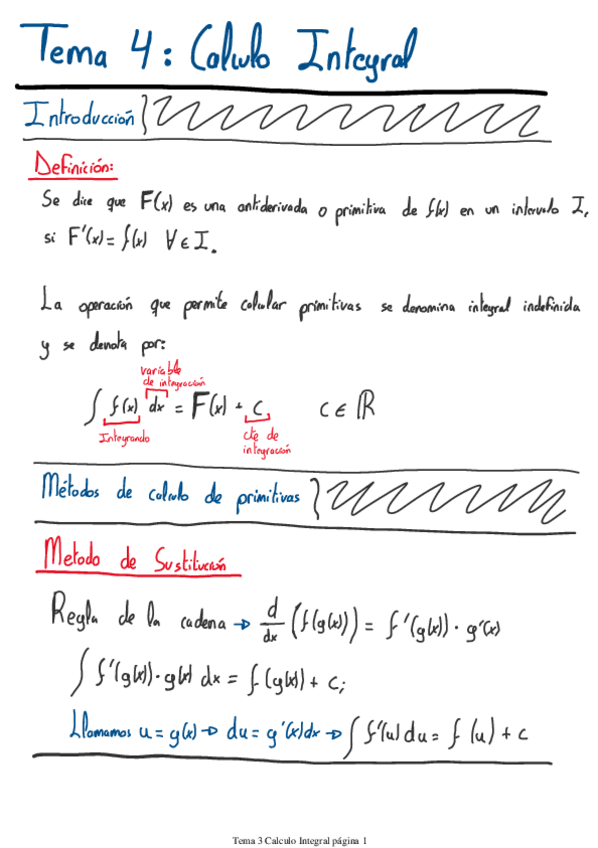 Tema 4: Calculo Integral
Introducción
Definición:
Se dice que F(x) es una antiderivada o primitiva de f(x) en un intervalo I,
si F'(x)= f(x) ∀ ∈ I.
La operación que permite calcular primitivas se denomina integral indefinida
y se denota por:
variable
de integración
∫ f(x) dx = F(x) + C, C ∈ ℝ
Integrando
cte de
integración
Métodos de calculo de primitivas
Metodo de Sustitución
Regla de la cadena → d/dx (f(g(x))) = f'(g(x)) · g'(x)
∫ f'(g(x)) · g(x) dx = f(g(x)) + C;
Llamamos u = g(x) → du = g'(x)dx → ∫ f'(u) du = f(u) + C
Tema 3 Calculo Integral página 1